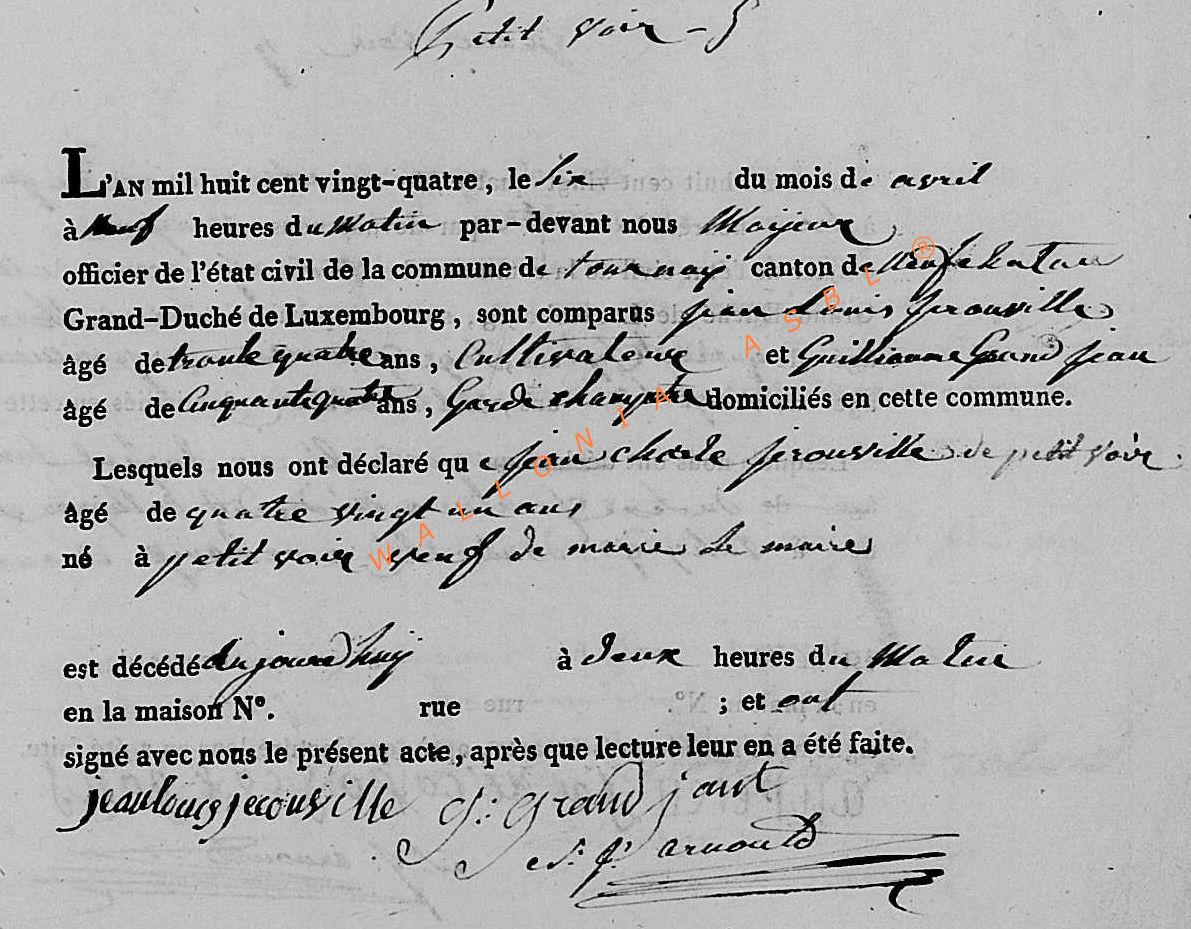 Petit voir - 5
L'AN mil huit cent vingt-quatre, le six du mois de avril
à neuf heures du matin par-devant nous Mayeur
officier de l'état civil de la commune de tournay canton de Neufchatau
Grand-Duché de Luxembourg, sont comparus jean Louis jerouville
âgé de trente quatre ans, Cultivateur et Guillianme Grand jean
âgé de Cinquante quatre ans, Garde champetre domiciliés en cette commune.
Lesquels nous ont déclaré que jean charle jerouville de petit voir
âgé de quatre vingt un ans
né à petit voir veuf de marie Le maire
est décédé aujourd'huy à deux heures du Matin
en la maison N°. rue ; et ont
signé avec nous le présent acte, après que lecture leur en a été faite.
jean louis jerouville G: grand jant
arnould
WALLONIA ASBL ®